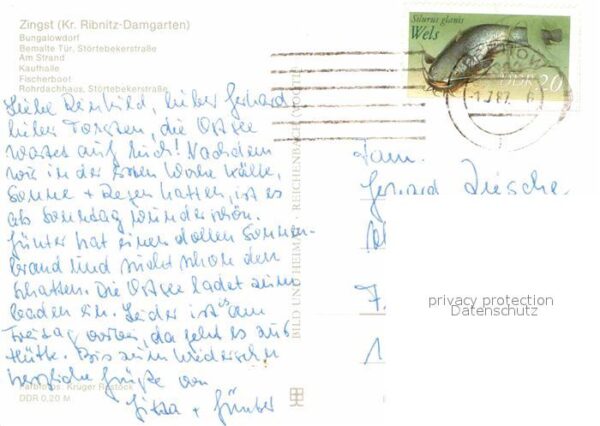 Zingst (Kr. Ribnitz-Damgarten)
Bungalowdorf
Bemalte Tür, Störtebekerstraße
Am Strand
Kaufhalle
Fischerboot
Rohrdachhaus, Störtebekerstraße
Liebe Reinhild, lieber Gerhard
lieber Torsten, die Ostsee
wartet auf Euch! Nachdem
wir in der ersten Woche Kälte,
Sonne + Regen hatten, ist es
ab Sonntag wunderschön.
Günter hat einen dollen Sonnen-
brand und sucht schon den
Schatten. Die Ostsee ladet zum
baden ein. Leider ist's am
Freitag vorbei, da geht es zur
Hütte. Bis zum Wiedersehen
herzliche Grüße von
+ Günter
Farbfotos: Krüger Rostock
DDR 0,20 M
BILD UND HEIMAT REICHENBACH (VOGTL)
Silurus glanis
Wels
DDR 20
Fam.
Gerhard
7.
1
privacy protection
Datenschutz